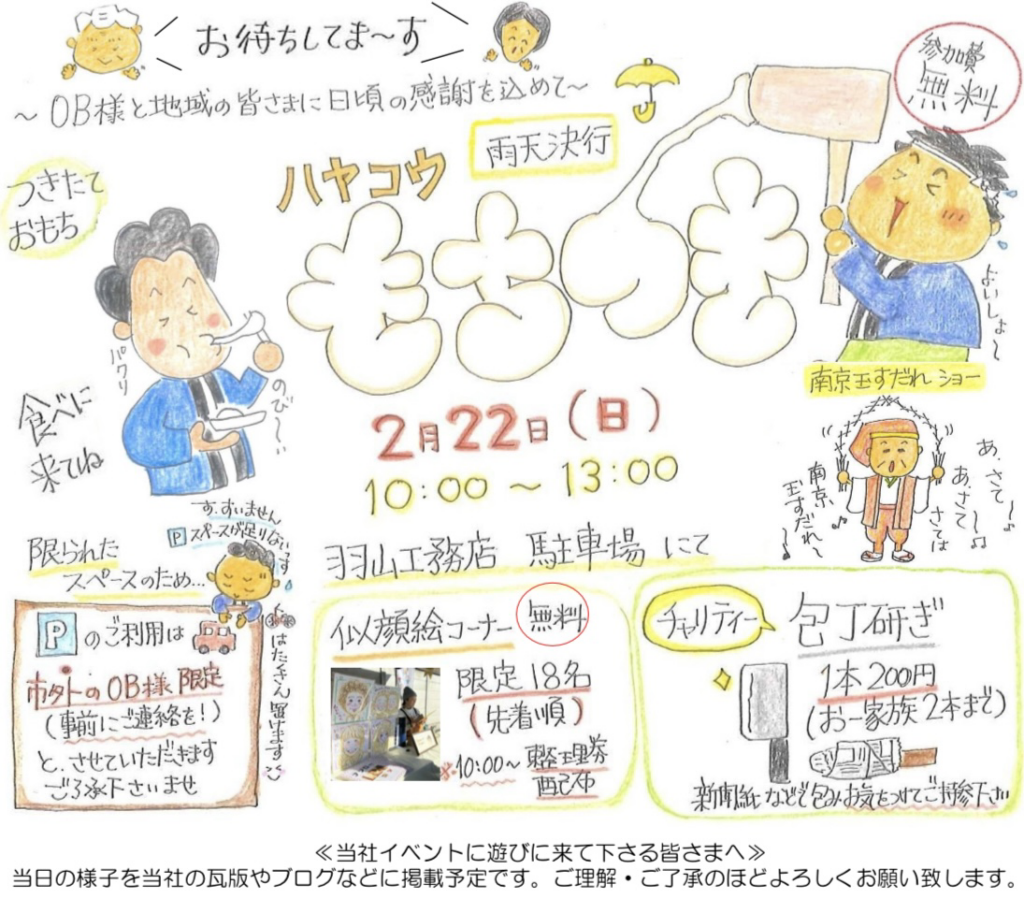 お待ちしてま〜す
〜OB様と地域の皆さまに日頃の感謝を込めて〜
参加費
無料
雨天決行
ハヤコウ
もちつき
つきたて
おもち
パクリ
のび〜
食べに
来てね
よいしょ〜
2月22日(日)
10:00〜13:00
羽山工務店 駐車場 にて
南京玉すだれ ショー
あ、さて〜♪
あ、さて〜♫
さては
南京
玉すだれ〜♪
す、すいません
P スペースが足りないっす
限られた
スペースのため...
P のご利用は
市外のOB様 限定
(事前にご連絡を!)
と、させていただきます
ご了承下さいませ
はたくさん置けます
似顔絵コーナー 無料
限定18名
(先着順)
※10:00〜 整理券
配布
チャリティー
包丁研ぎ
1本200円
(お一家族2本まで)
新聞紙などで包みお気をつけてご持参下さい
≪当社イベントに遊びに来て下さる皆さまへ≫
当日の様子を当社の瓦版やブログなどに掲載予定です。ご理解・ご了承のほどよろしくお願い致します。